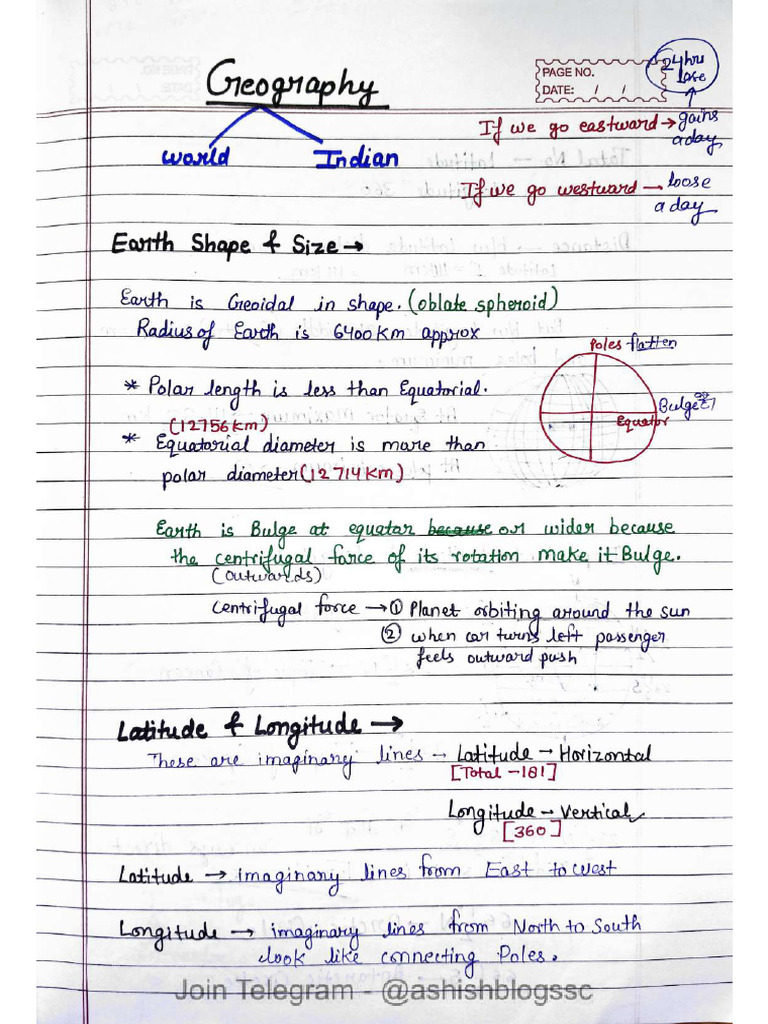 Geography
PAGE NO.
DATE: / /
24 hrs
lose
World Indian
If we go eastward → gains
a day
If we go westward → loose
a day
Earth Shape & Size →
Earth is Geoidal in shape. (oblate spheroid)
Radius of Earth is 6400 Km approx
Poles flatten
* Polar length is less than Equatorial.
Bulge
Equator
(12756 Km)
* Equatorial diameter is more than
polar diameter (12714 Km)
Earth is Bulge at equator because or wider because
the centrifugal force of its rotation make it Bulge.
(outwards)
Centrifugal force → ① Planet orbiting around the sun
② when car turns left passenger
feels outward push
Latitude & Longitude →
These are imaginary lines → Latitude → Horizontal
[Total - 181]
Longitude → Vertical
[360]
Latitude → imaginary lines from East to West
Longitude → imaginary lines from North to South
look like connecting Poles.
Join Telegram - @ashishblogssc